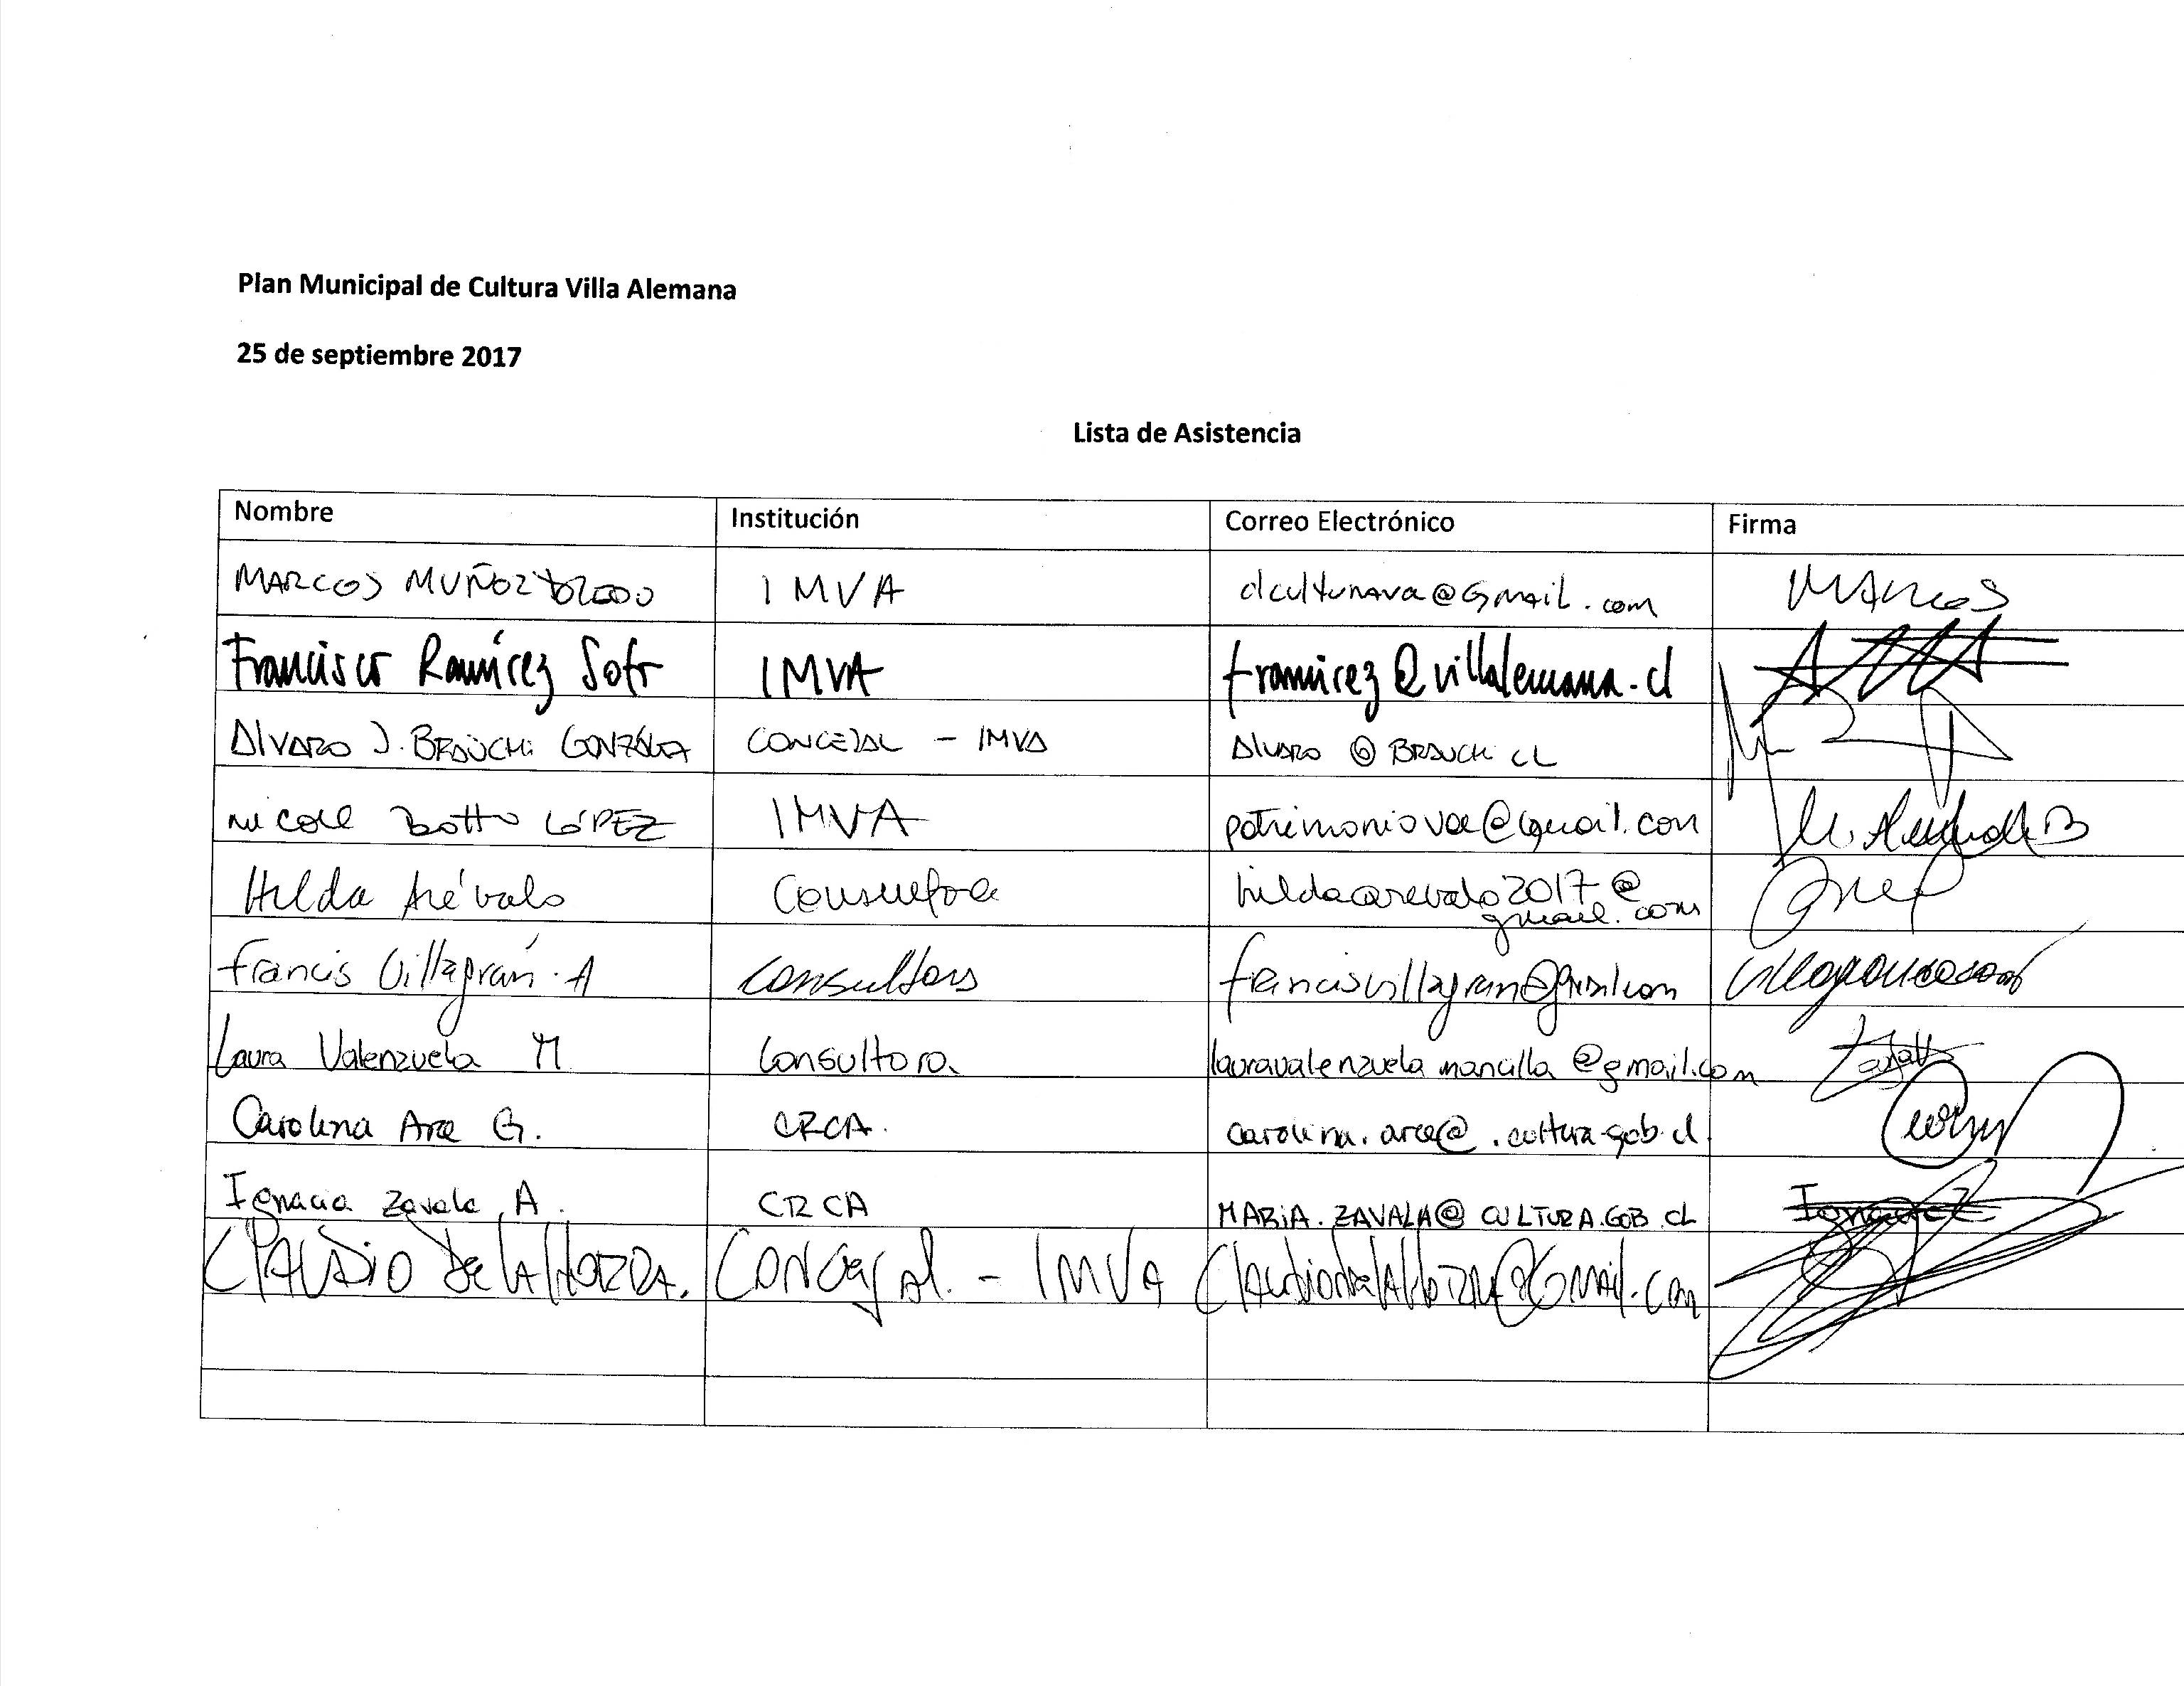 Plan Municipal de Cultura Villa Alemana
25 de septiembre 2017
Lista de Asistencia
Nombre Institución Correo Electrónico Firma
MARCOS MUÑOZ IMVA dculturava@Gmail.com MARCOS
Francisco Ramírez Soto IMVA framirez@villalemana.cl
ALVARO J. BRAUCHI GONZÁLEZ CONCEJAL - IMVA ALVARO @ BRAUCHI CL
Nicole Botto LÓPEZ IMVA patrimoniova@gmail.com
Hilda Arévalo Consultora hildaarevalo2017@
gmail.com
Francis Villagrán A Consultora francisvillagran@gmail.com
Laura Valenzuela M Consultora lauravalenzuela mancilla @gmail.com
Carolina Arce G. CRCA. carolina.arce@.cultura.gob.cl
Ignacia Zavala A. CRCA MARIA.ZAVALA@CULTURA.GOB.CL
CLAUDIO De LA HORRA. CONCEJAL. - IMVA ClaudiodelaHorra@Gmail.com